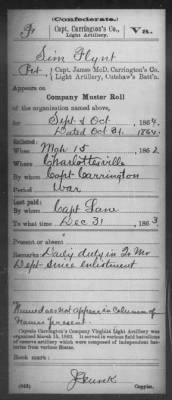 (Confederate.)
F Capt. Carrington's Co., Va.
Light Artillery.
Sim Flynt
Pvt, Capt. James McD. Carrington's Co.,
Light Artillery, Cutshaw's Batt'n.
Appears on
Company Muster Roll
of the organization named above,
for Sept & Oct, 1864.
Dated Oct 31, 1864.
Enlisted:
When Mch 15, 1862
Where Charlottesville
By whom Capt Carrington
Period War
Last paid:
By whom Capt Lane
To what time Dec 31, 1863.
Present or absent
Remarks: Daily duty in Q. Mr
Dept since enlistment
Name does not appear in column of
Names Present.
Captain Carrington's Company Virginia Light Artillery was
organized March 15, 1862. It served in various field battalions
of reserve artillery which were composed of independent bat-
teries from various States.
Book mark:
(642)
Copyist.